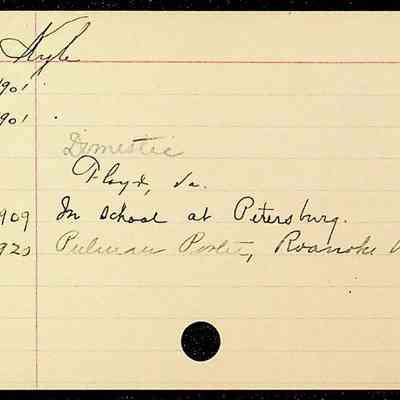 Kyle
1901.
1901.
Domestic
Floyd, Va.
1909 In school at Petersburg.
1920 Pulman Porter, Roanoke